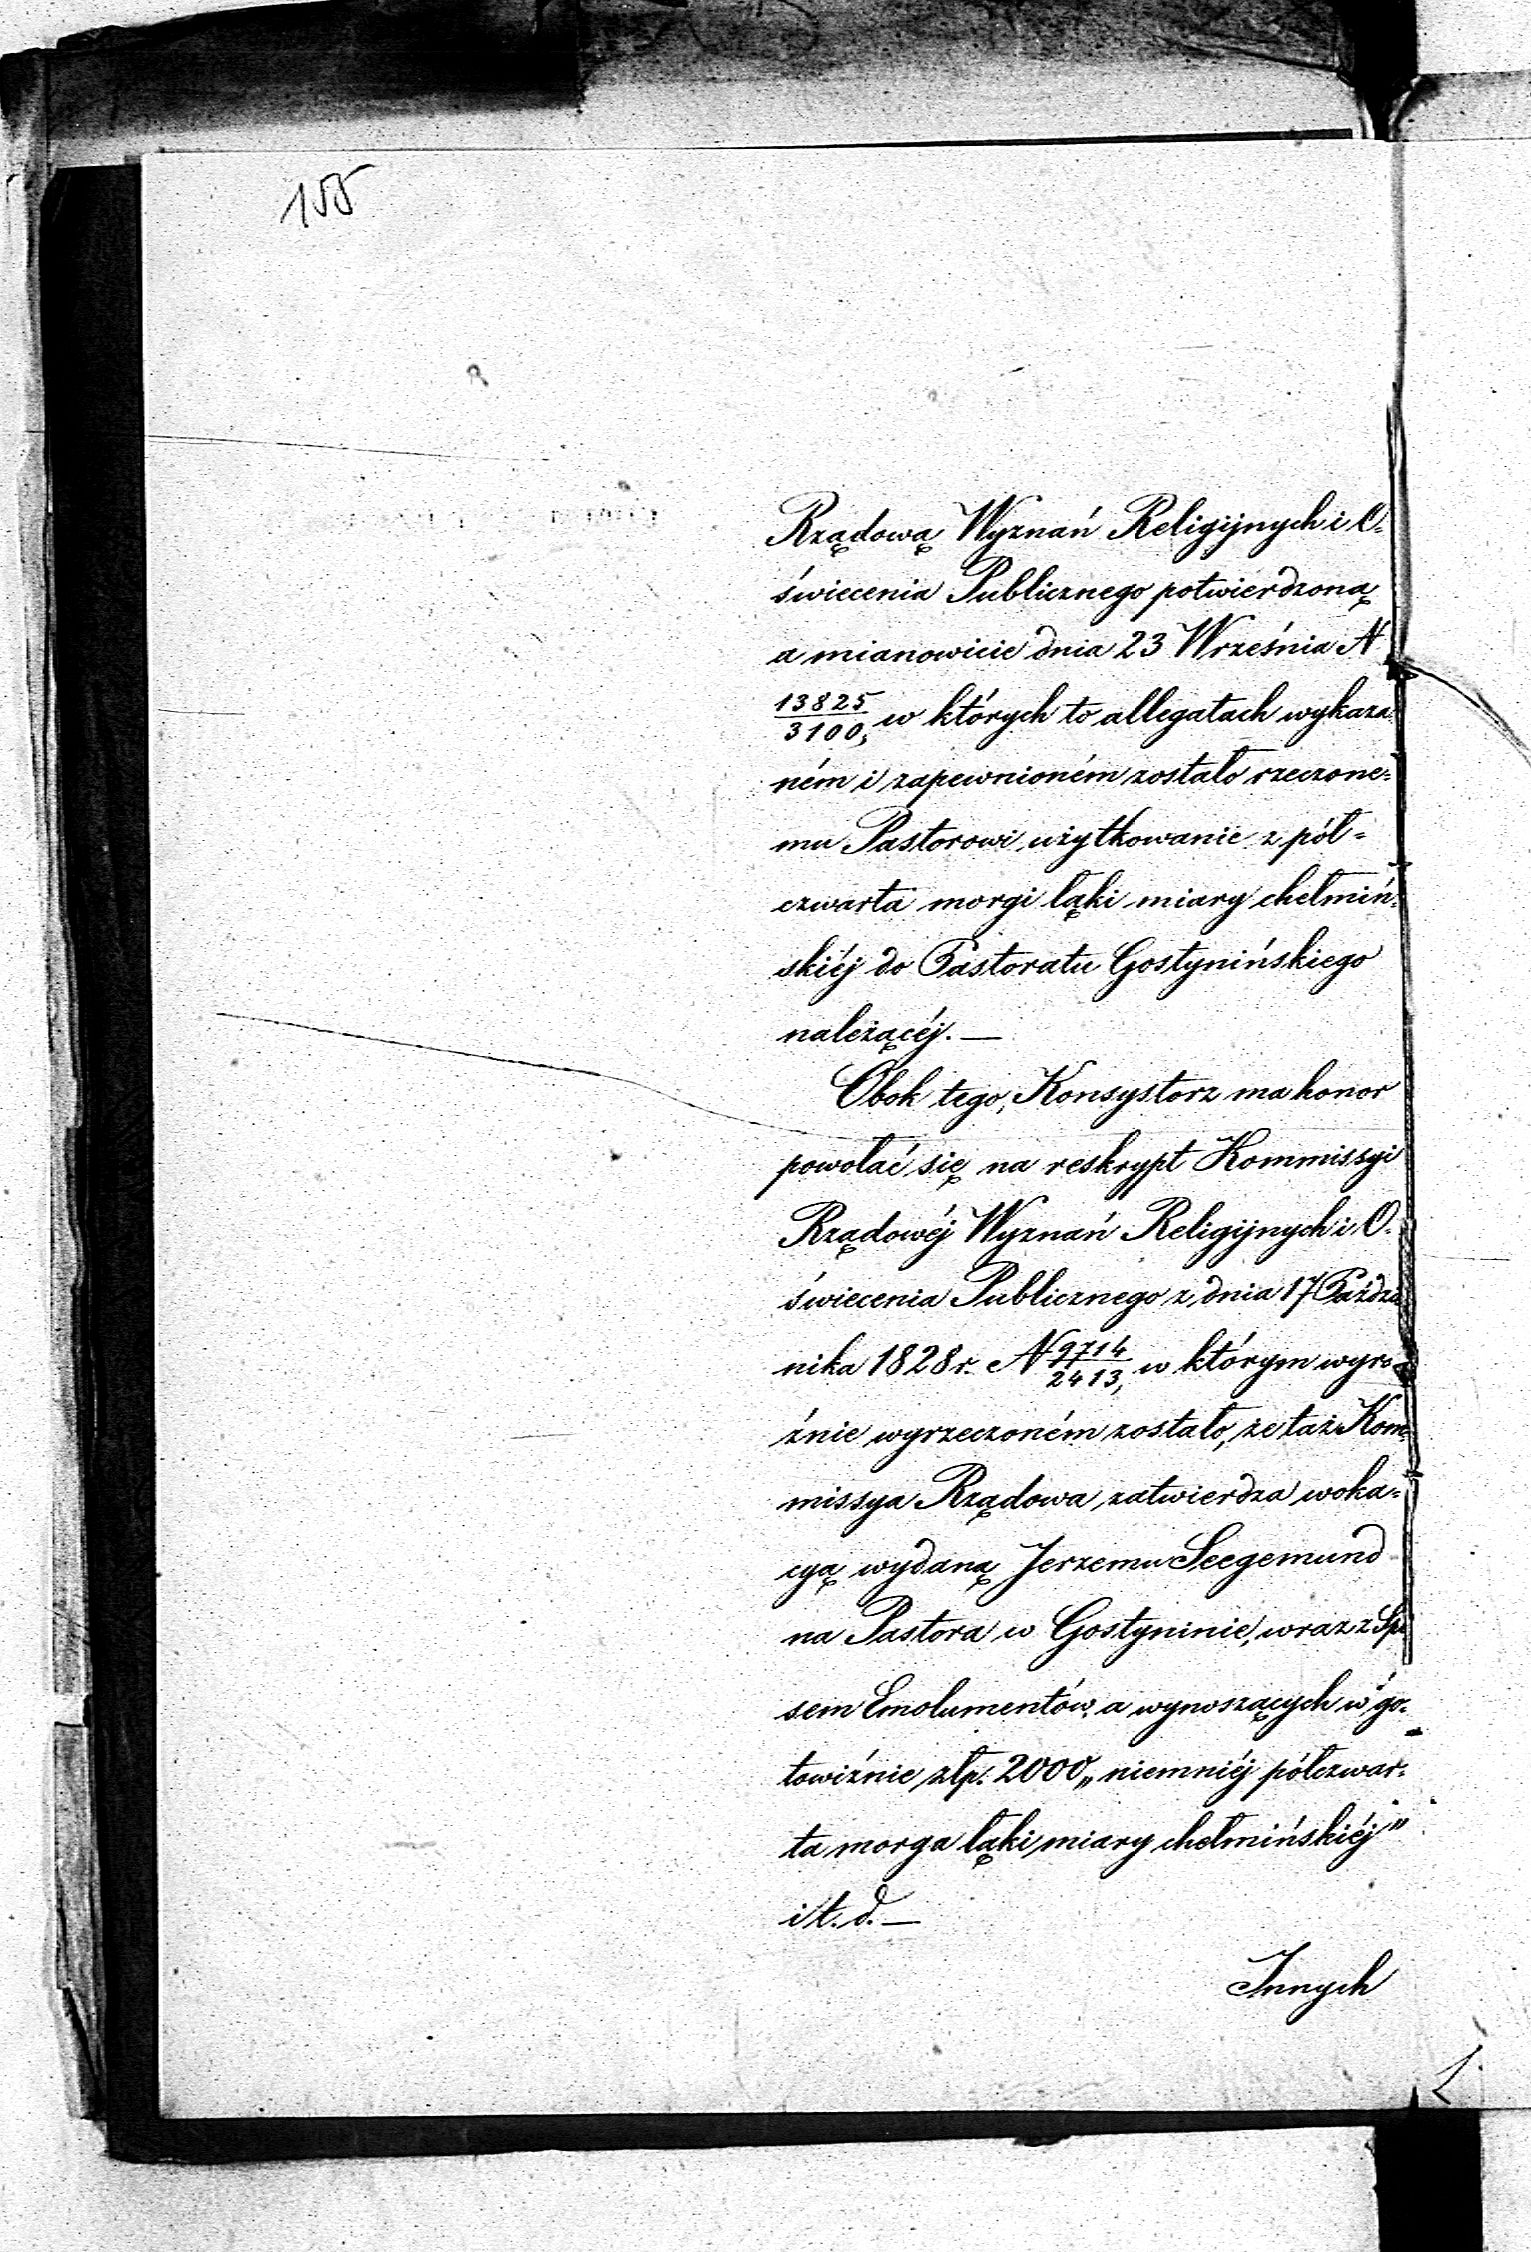 155
Rządową Wyznań Religijnych i O-
świecenia Publicznego potwierdzoną
a mianowicie dnia 23 Września N
13825/3100, w których to allegatach wykaza-
ném i zapewnioném zostało rzeczone=
mu Pastorowi użytkowanie z pół=
czwarta morgi łąki miary chełmiń=
skiéj do Pastoratu Gostynińskiego
należącéj. —
Obok tego, Konsystorz ma honor
powołać się na reskrypt Kommissyi
Rządowéj Wyznań Religijnych i O-
świecenia Publicznego z dnia 17 Paźdz
nika 1828 r. N 9714/2413, w którym wyra
źnie wyrzeczoném zostało, że taż Kom=
missya Rządowa zatwierdza woka=
cyą wydaną Jerzemu Seegemund
na Pastora w Gostyninie, wraz z Spi
sem Emolumentów, a wynoszących w go=
towiźnie złp. 2000 „niemniéj półczwar=
ta morga łąki miary chełmińskiéj"
i t. d. —
Innych